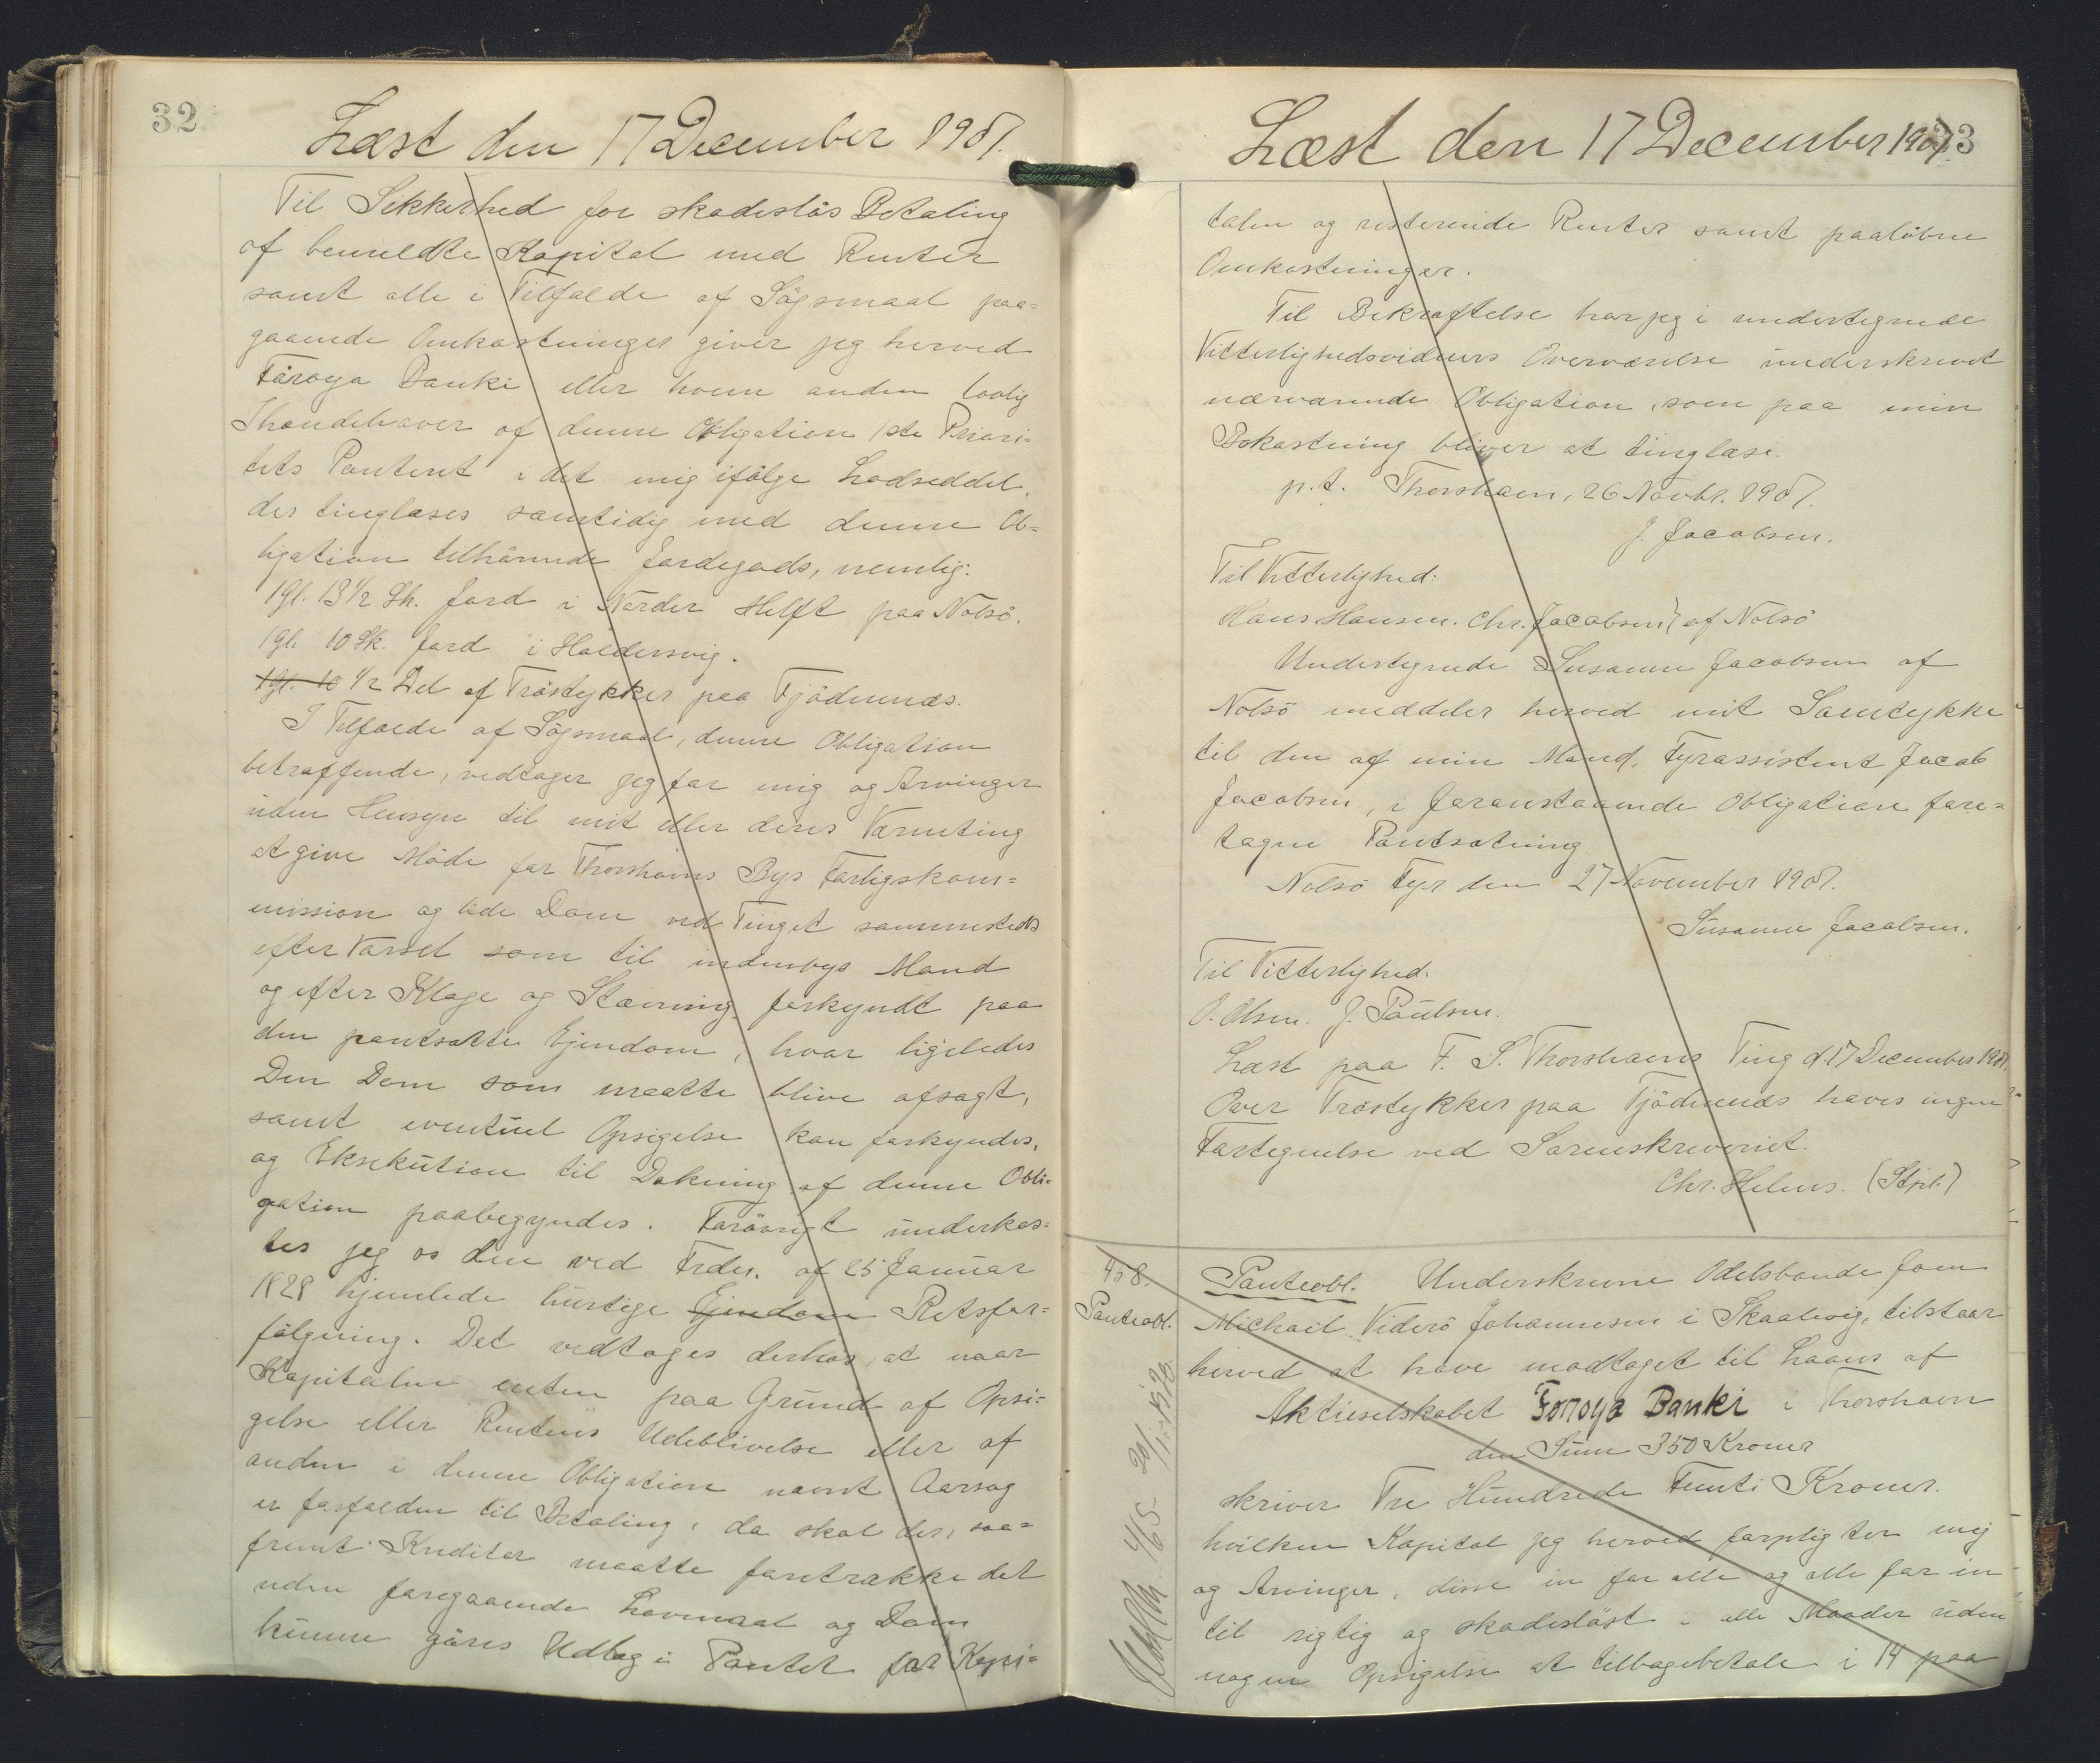 32
Læst den 17 December 1907.
Til Sikkerhed for skadeslös Betaling
af bemeldte Kapital med Renter
samt alle i Tilfælde af Sögsmaal paa-
gaaende Omkostninger giver jeg herved
Färoya Banki eller hvem anden lovlig
Ihændehaver af denne Obligation 1ste Priori-
tets Panteret i det mig ifölge Lodseddel,
der tinglæses samtidig med denne Ob-
ligation tilhörende Jordegods, nemlig:
1 Gl. 13 1/2 Sk. Jord i Nörder Helft paa Nolsö.
1 Gl. 10 Sk. Jord i Haldersvig.
1 Gl. 10 1/2 Del af Tröstykker paa Tjödnenæs.
I Tilfælde af Sögsmaal, denne Obligation
betræffende, vedtager jeg for mig og Arvinger
uden Hensyn til mit eller deres Værneting
at give Möde for Thorshavns Bys Forligskom-
mission og lide Dom ved Tinget sammesteds
efter Varsel som til indenbys Mand
og efter Klage og Stævning forkyndt paa
den pantsatte Ejendom, hvor ligeledes
Den Dom som maatte blive afsagt,
samt eventuel Opsigelse kan forkyndes,
og Eksekution til Dækning af denne Obli-
gation paabegyndes. Forövrigt underkas-
tes jeg os den ved Frdn. af 25 Januar
1828 hjemlede hurtige Ejendom Retsfor-
fölgning. Det vedtages derhos, at naar
Kapitalen enten paa Grund af Opsi-
gelse eller Rentens Udeblivelse eller af
anden i denne Obligation nævnt Aarsag
er forfalden til Betaling, da skal der, saa-
fremt Kreditor maatte foretrække det
uden foregaaende Lovmaal og Dom
kunne göres Udlæg i Pantet for Kapi-
33
Læst den 17 December 1907
talen og resterende Renter samt paalöbne
Omkostninger.
Til Bekræftelse har jeg i undertegnede
Vitterlighedsvidners Overværelse underskrevet
nærværende Obligation, som paa min
Bekostning bliver at tinglæse.
p.t. Thorshavn, 26 Novbr. 1907.
J. Jacobsen.
Til Vitterlighed:
Hans Hansen. Chr. Jacobsen } af Nolsö
Undertegnede Susanne Jacobsen af
Nolsö meddeler herved mit Samtykke
til den af min Mand, Fyrassistent Jacob
Jacobsen, i foranstaaende Obligation fore-
tagne Pantsætning
Nolsö Fyr den 27 November 1907.
Susanne Jacobsen.
Til Vitterlighed.
O. Olsen. J. Poulsen.
Læst paa F. S. Thorshavns Ting d. 17 December 1907.
Over Tröstykker paa Tjödnenæs haves ingen
Fortegnelse ved Sorenskriveriet.
Chr. Helms. (Stpl.)
458.
Panteobl.
Panteobl. Underskrevne Odelsbonde Joen
Michael Viderö Johannesen i Skaalevig, tilstaar
herved at have modtaget til Laans af
Aktieselskabet Förroya Banki i Thorshavn
den Sum 350 Kroner
skriver Tre Hundrede Femti Kroner.
hvilken Kapital jeg herved forpligter mig
og Arvinger, disse en for alle og alle for en
til rigtig og skadeslöst i alle Maader uden
nogen Opsigelse at tilbagebetale i 14 paa